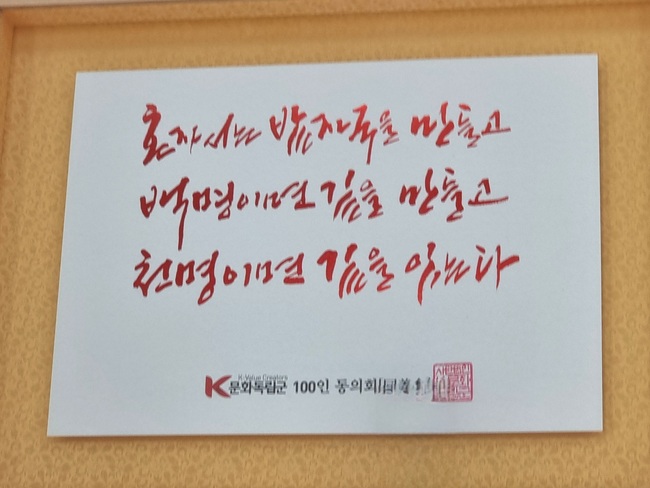 혼자서는 발자국을 만들고
백명이면 길을 만들고
천명이면 길을 잇는다
K-Value Creators
K 문화독립군 100인 동의회